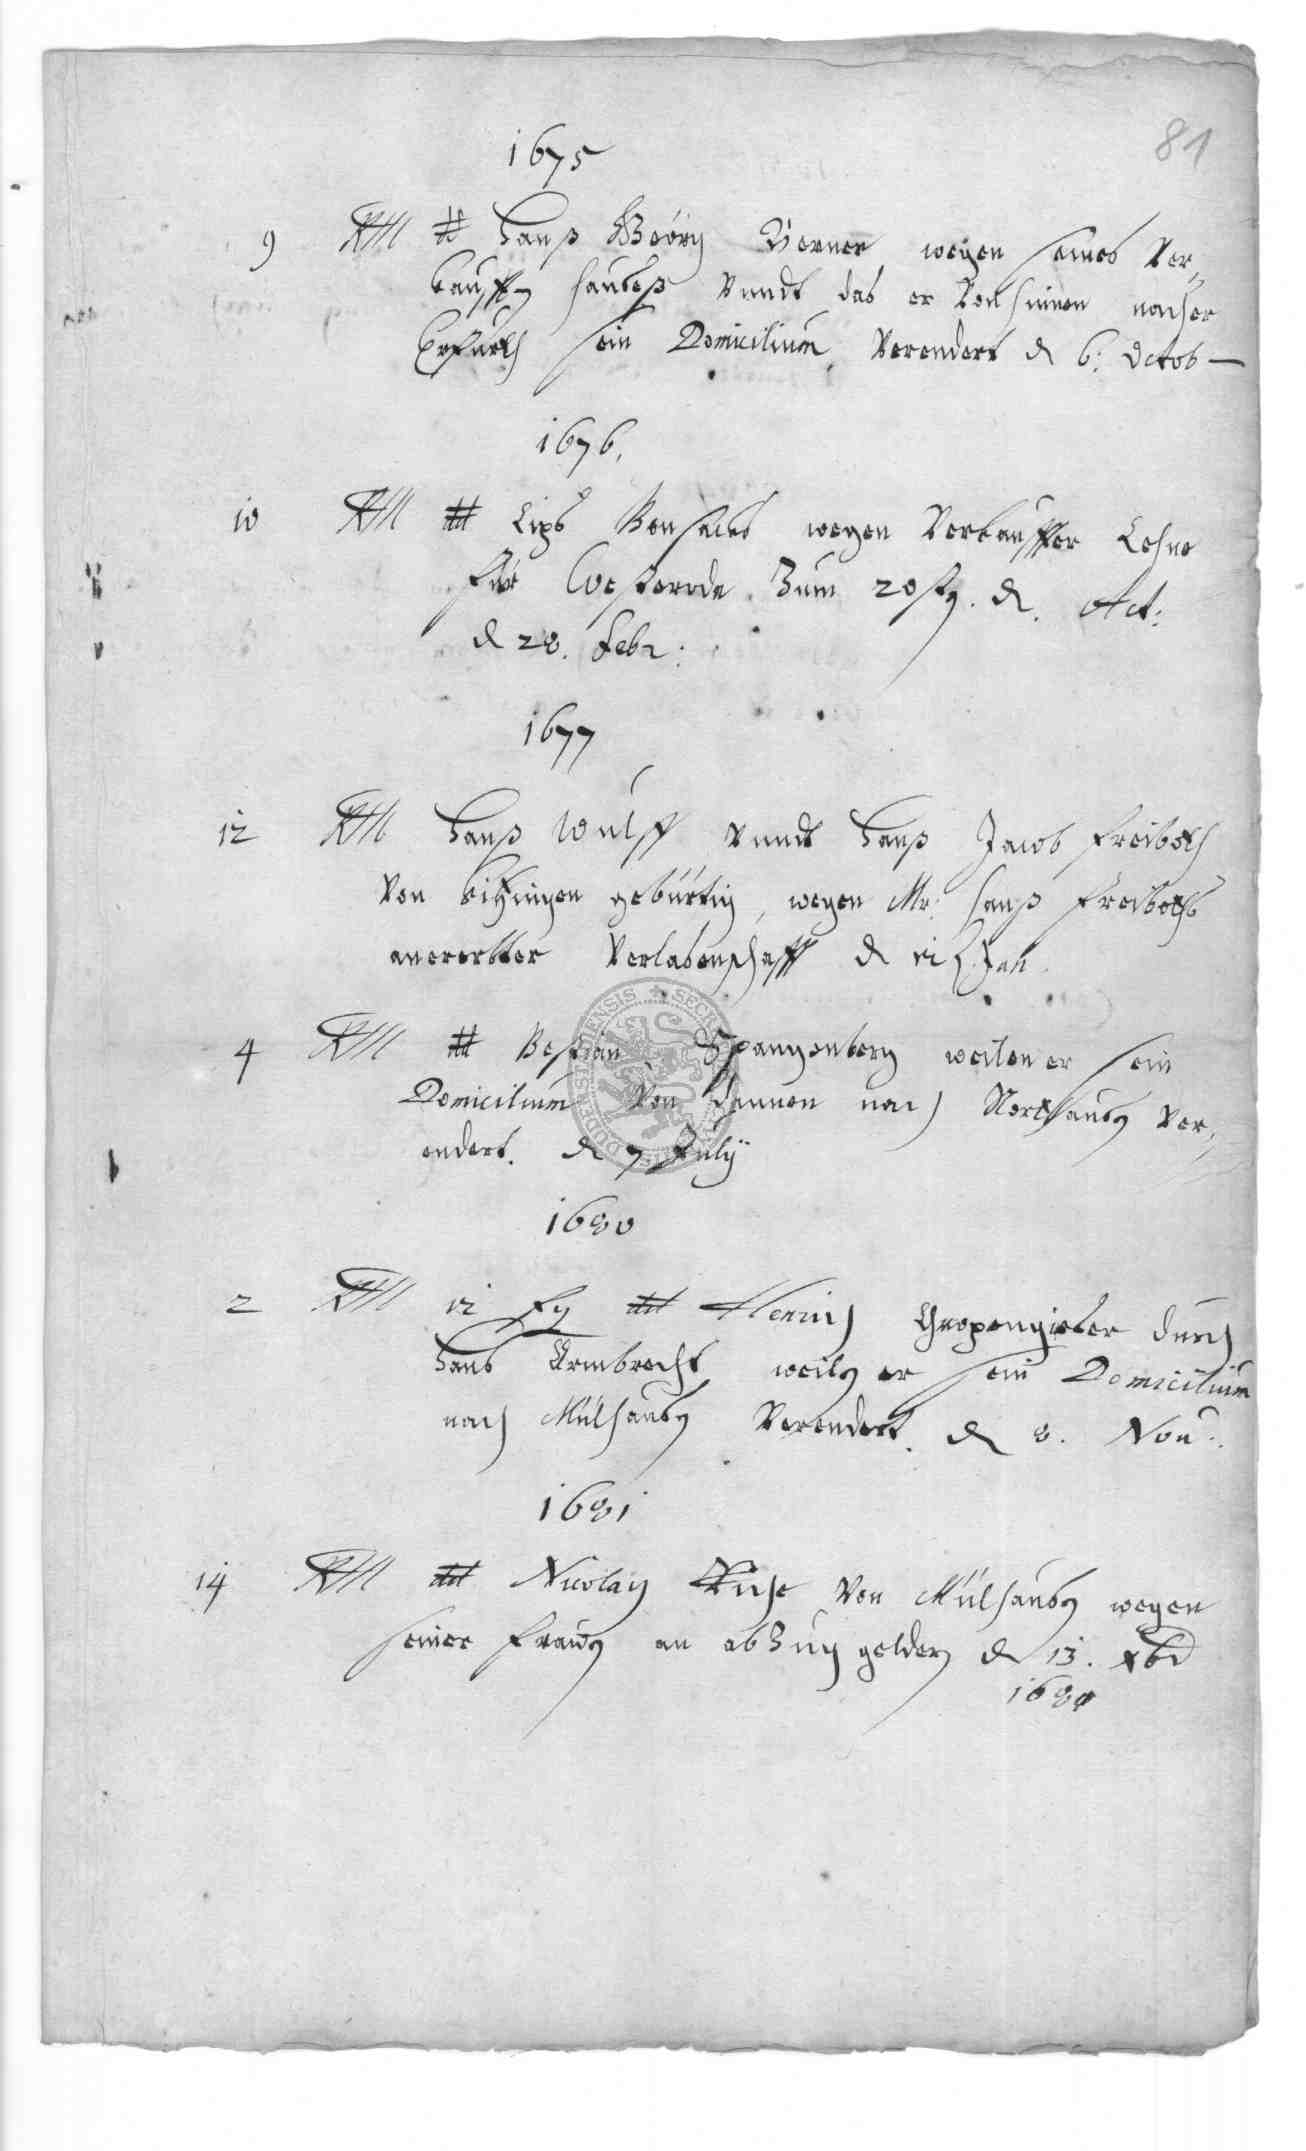 81
1675
9 Rthl dt Hanß Geörg Werner wegen seines ver-
kaufften hauseß vnndt das er von hinnen nacher
Erfurth sein Domicilium verendert d 6: Octob
1676.
10 Rthl dt Lips wegen verkauffter Lehne
für Westerode zum d. Act:
d 28. Febr:
1677
12 Rthl Hanß Wulff vnndt Hanß Jacob Freiboth
von gebürtig, wegen Mr: Hanß Freiboths
anererbter verlasenschafft d 12 Jan.
4 Rthl dt Bastian Spangenberg weilen er sein
Domicilium von dannen nach Northausen ver-
endert. d 7 July
1680
2 Rthl 12 dt Henrich Gropengieser durch
Hans Armbrecht weilen er sein Domicilium
nach Mülhausen verendert. d 8. Nou:
1681
14 Rthl dt Nicolay von Mülhausen wegen
seiner frawen an abzug geldern d 13. xbr